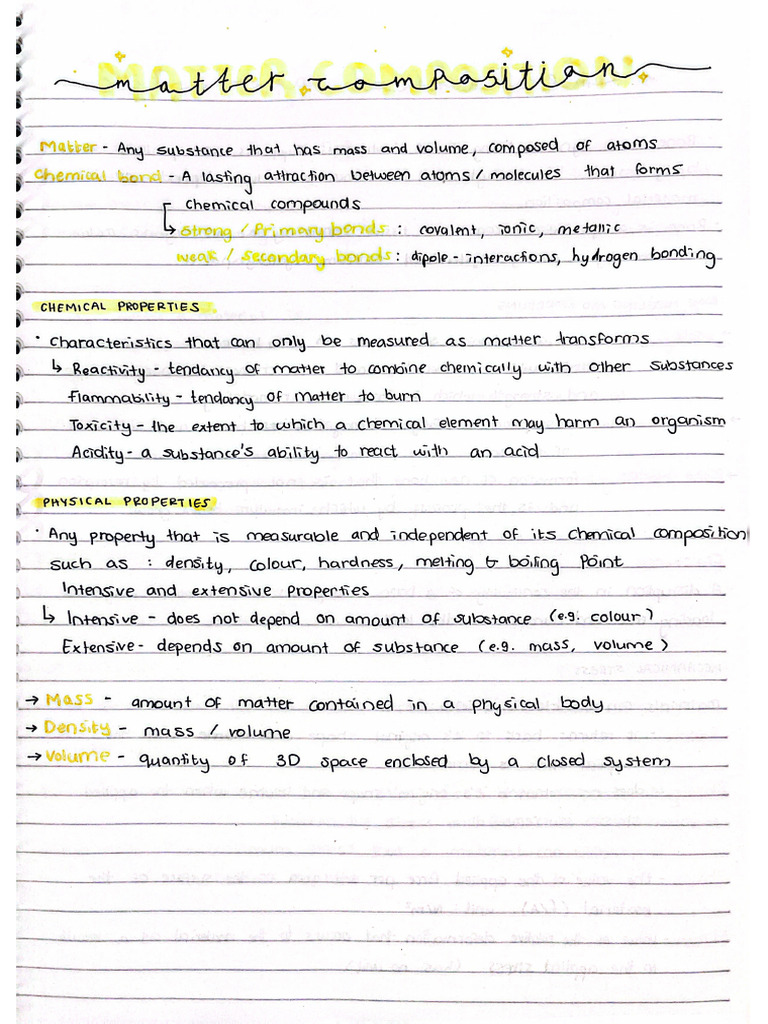 matter composition
Matter - Any substance that has mass and volume, composed of atoms
Chemical bond - A lasting attraction between atoms / molecules that forms
chemical compounds
↳ Strong / Primary bonds : covalent, ionic, metallic
weak / secondary bonds : dipole - interactions, hydrogen bonding
CHEMICAL PROPERTIES
· Characteristics that can only be measured as matter transforms
↳ Reactivity - tendancy of matter to combine chemically with other substances
Flammability - tendancy of matter to burn
Toxicity - the extent to which a chemical element may harm an organism
Acidity - a substance's ability to react with an acid
PHYSICAL PROPERTIES
· Any property that is measurable and independent of its chemical composition
such as : density, colour, hardness, melting & boiling point
Intensive and extensive properties
↳ Intensive - does not depend on amount of substance (e.g. colour)
Extensive - depends on amount of substance (e.g. mass, volume)
→ Mass - amount of matter contained in a physical body
→ Density - mass / volume
→ Volume - quantity of 3D space enclosed by a closed system